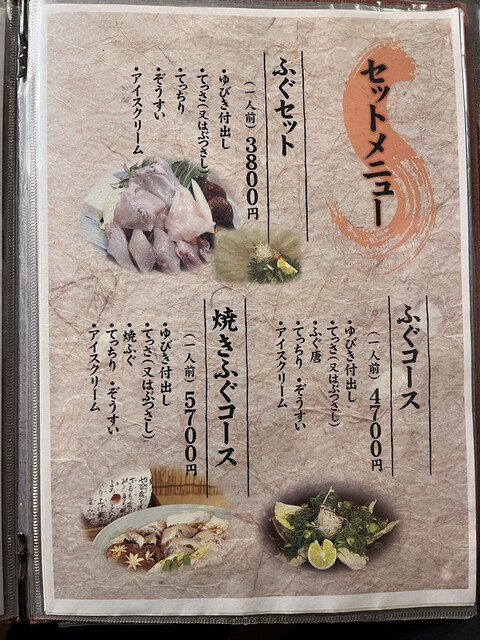 セットメニュー
ふぐセット
（一人前）3800円
・ゆびき付出し
・てっさ（又はぶつさし）
・てっちり
・ぞうすい
・アイスクリーム
ふぐコース
（一人前）4700円
・ゆびき付出し
・てっさ（又はぶつさし）
・ふぐ唐
・てっちり・ぞうすい
・アイスクリーム
焼きふぐコース
（一人前）5700円
・ゆびき付出し
・てっさ（又はぶつさし）
・焼ふぐ
・てっちり・ぞうすい
・アイスクリーム